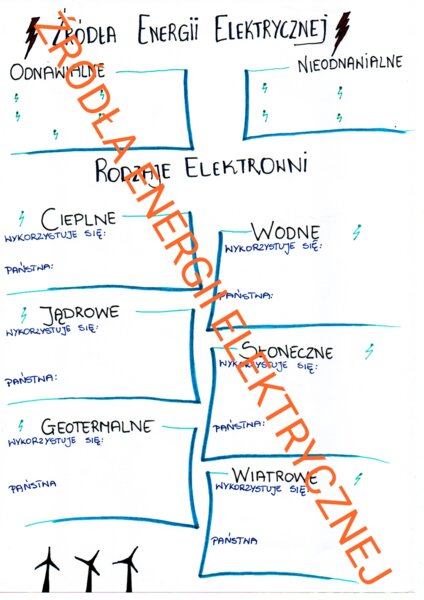 Źródła Energii Elektrycznej
Odnawialne
Nieodnanialne
Rodzaje Elektrowni
Cieplne
Wykorzystuje się:
Państwa:
Wodne
Wykorzystuje się:
Państwa:
Jądrowe
Wykorzystuje się:
Państwa:
Słoneczne
Wykorzystuje się:
Państwa:
Geotermalne
Wykorzystuje się:
Państwa
Wiatrowe
Wykorzystuje się:
Państwa
ŹRÓDŁA ENERGII ELEKTRYCZNEJ